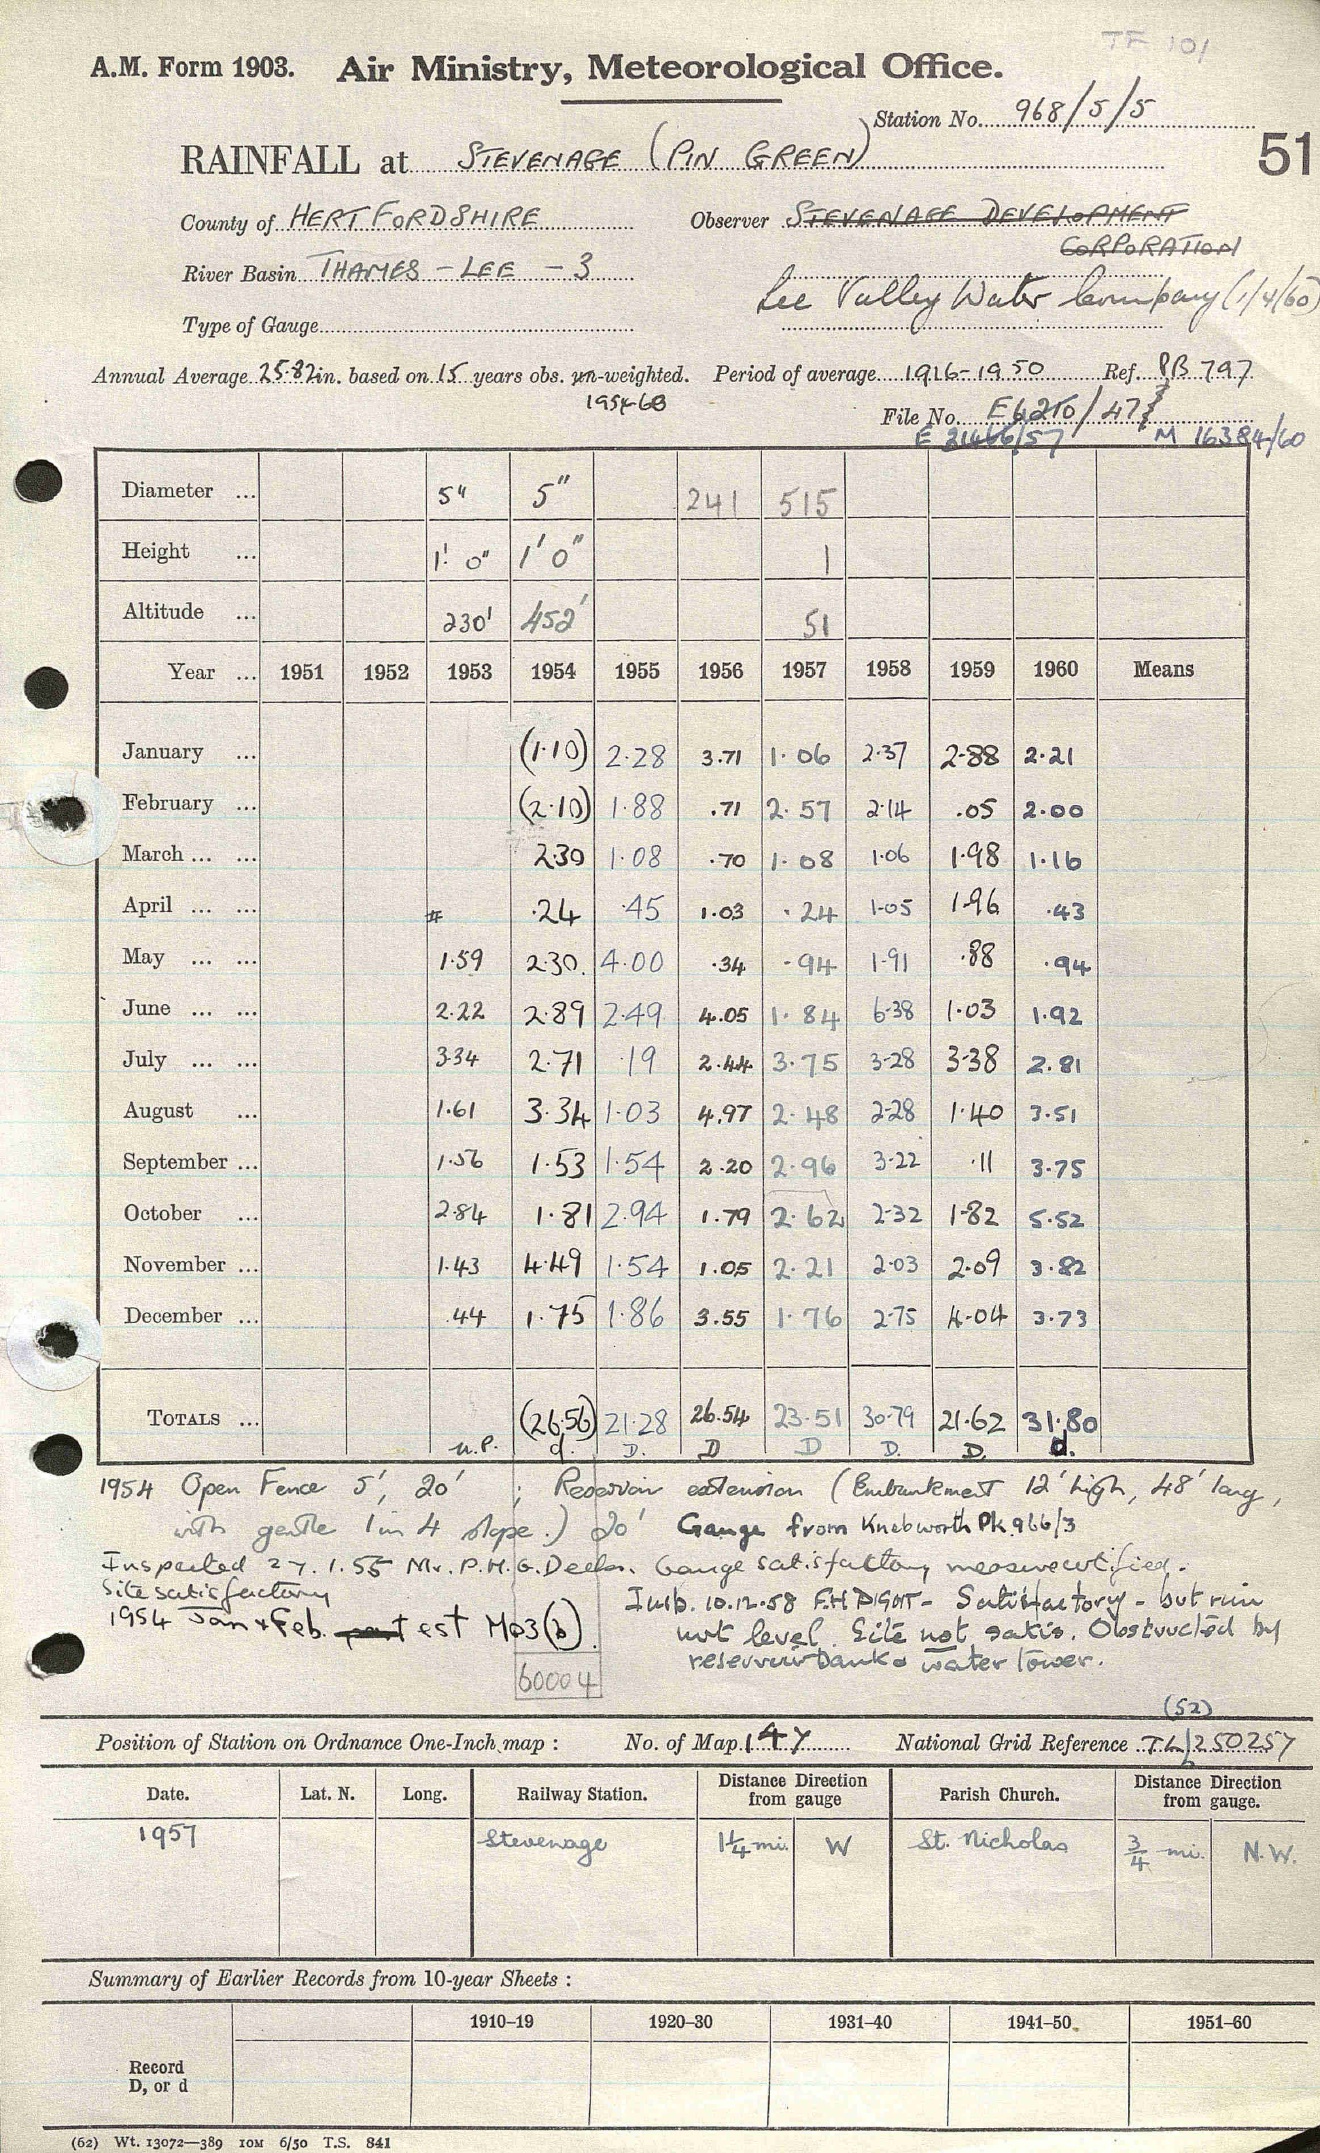 TF 101
A.M. Form 1903. Air Ministry, Meteorological Office.
Station No. 968/5/5
51
RAINFALL at STEVENAGE (PIN GREEN)
County of HERTFORDSHIRE Observer STEVENAGE DEVELOPMENT
CORPORATION
River Basin THAMES - LEE - 3
Lee Valley Water Company (1/4/60)
Type of Gauge
Annual Average 25.82 in. based on 15 years obs. un-weighted. Period of average 1916-1950 Ref. PB 797
1954-68
File No. E6210/47
E 21466/57 M 16384/60
Diameter ... 5" 5" 241 515
Height ... 1' 0" 1' 0" 1
Altitude ... 230' 452' 51
Year ... 1951 1952 1953 1954 1955 1956 1957 1958 1959 1960 Means
January ... (1.10) 2.28 3.71 1.06 2.37 2.88 2.21
February ... (2.10) 1.88 .71 2.57 2.14 .05 2.00
March ... ... 2.30 1.08 .70 1.08 1.06 1.98 1.16
April ... ... # .24 .45 1.03 .24 1.05 1.96 .43
May ... ... 1.59 2.30 4.00 .34 .94 1.91 .88 .94
June ... ... 2.22 2.89 2.49 4.05 1.84 6.38 1.03 1.92
July ... ... 3.34 2.71 .19 2.44 3.75 3.28 3.38 2.81
August ... 1.61 3.34 1.03 4.97 2.48 2.28 1.40 3.51
September ... 1.56 1.53 1.54 2.20 2.96 3.22 .11 3.75
October ... 2.84 1.81 2.94 1.79 2.62 2.32 1.82 5.52
November ... 1.43 4.49 1.54 1.05 2.21 2.03 2.09 3.82
December ... .44 1.75 1.86 3.55 1.76 2.75 4.04 3.73
TOTALS ... (26.56) 21.28 26.54 23.51 30.79 21.62 31.80
n.P. d. D. D D D. D. d.
1954 Open Fence 5', 20' ; Reservoir extension (Embankment 12' high, 48' long,
with gentle 1 in 4 slope.) 20' Gauge from Knebworth Pk 966/3
Inspected 27.1.55 Mr. P.H.G. Gauge satisfactory measure certified.
Site satisfactory
Insp. 10.12.58 F.H DIGHT - Satisfactory - but rim
1954 Jan + Feb. est Mo3(b).
not level. Site not satis. Obstructed by
reservoir bank & water tower.
60004
(52)
Position of Station on Ordnance One-Inch map : No. of Map 147 National Grid Reference TL/250257
Date. Lat. N. Long. Railway Station. Distance Direction from gauge Parish Church. Distance Direction from gauge.
1957 Stevenage 1¼ mi. W St. Nicholas ¾ mi. N.W.
Summary of Earlier Records from 10-year Sheets :
1910–19 1920–30 1931–40 1941–50 1951–60
Record
D, or d
(62) Wt. 13072—389 10M 6/50 T.S. 841